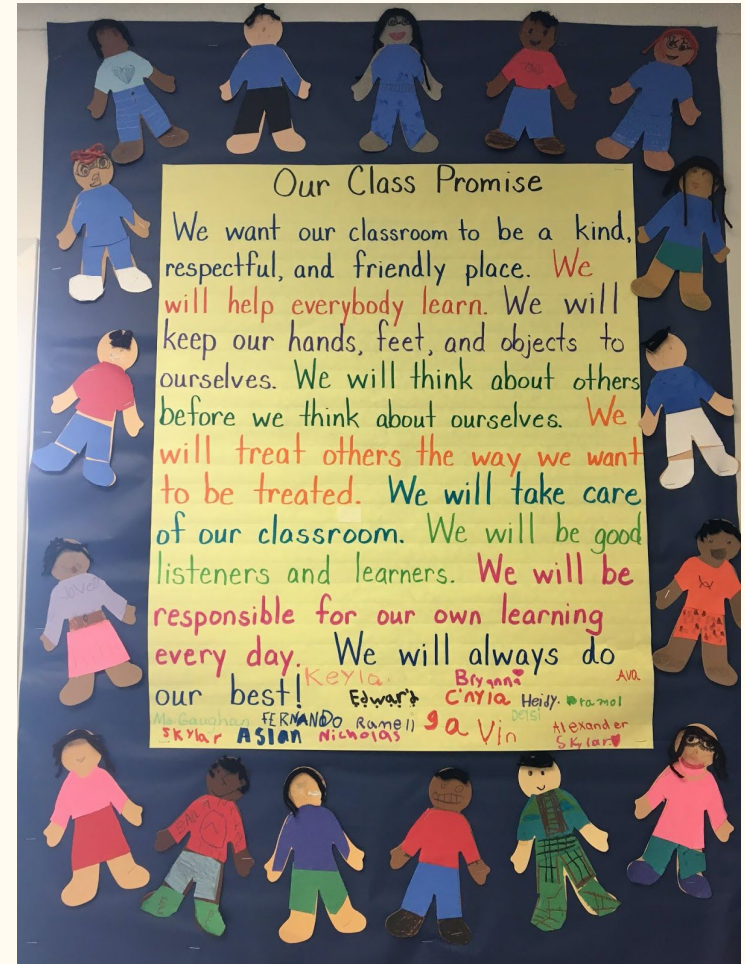 Our Class Promise
We want our classroom to be a kind,
respectful, and friendly place. We
will help everybody learn. We will
keep our hands, feet, and objects to
ourselves. We will think about others
before we think about ourselves. We
will treat others the way we want
to be treated. We will take care
of our classroom. We will be good
listeners and learners. We will be
responsible for our own learning
every day. We will always do
our best! Keyla. Bryanna Ava
Edward C'nyla Heidy.
Ms. Gaughan FERNANDO Ramell Vin Alexander
Skylar Aslan Nicholas Skylar